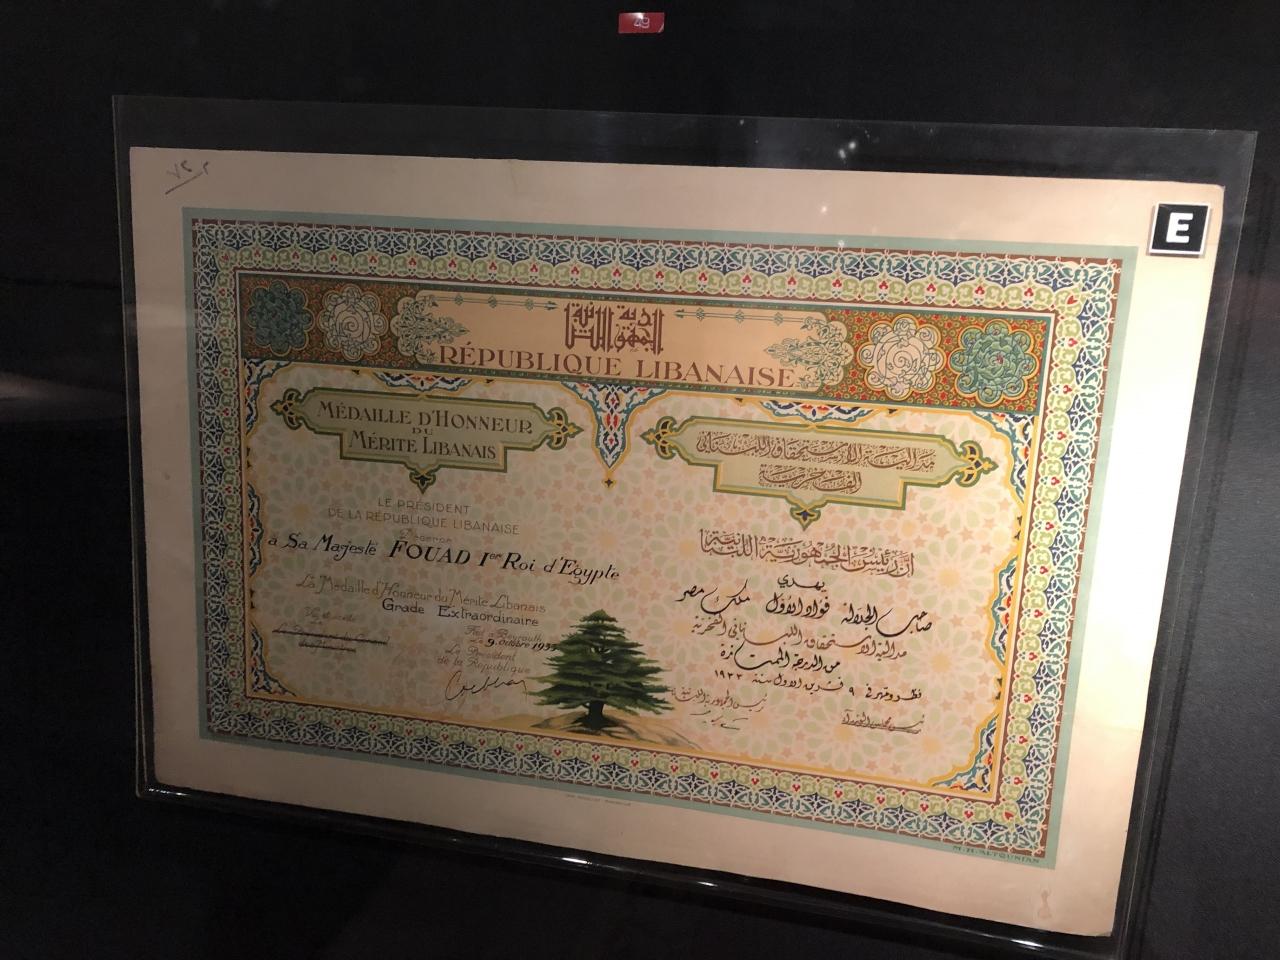 49
E
الجمهورية اللبنانية
RÉPUBLIQUE LIBANAISE
MÉDAILLE D'HONNEUR
DU
MÉRITE LIBANAIS
LE PRÉSIDENT
DE LA RÉPUBLIQUE LIBANAISE
Décerne
à Sa Majesté FOUAD Ier Roi d'Égypte
La Médaille d'Honneur du Mérite Libanais
Grade Extraordinaire
Fait à Beyrouth
Le 9 Octobre 1933
Le Président
de la République
مدالية الاستحقاق اللبناني
الفخرية
ان رئيس الجمهورية اللبنانية
يهدي
صاحب الجلالة فؤاد الاول ملك مصر
مدالية الاستحقاق اللبناني الفخرية
من الدرجة الممتازة
في ٩ تشرين الاول سنة ١٩٣٣
رئيس الجمهورية اللبنانية
M.H. ALTOUNIAN